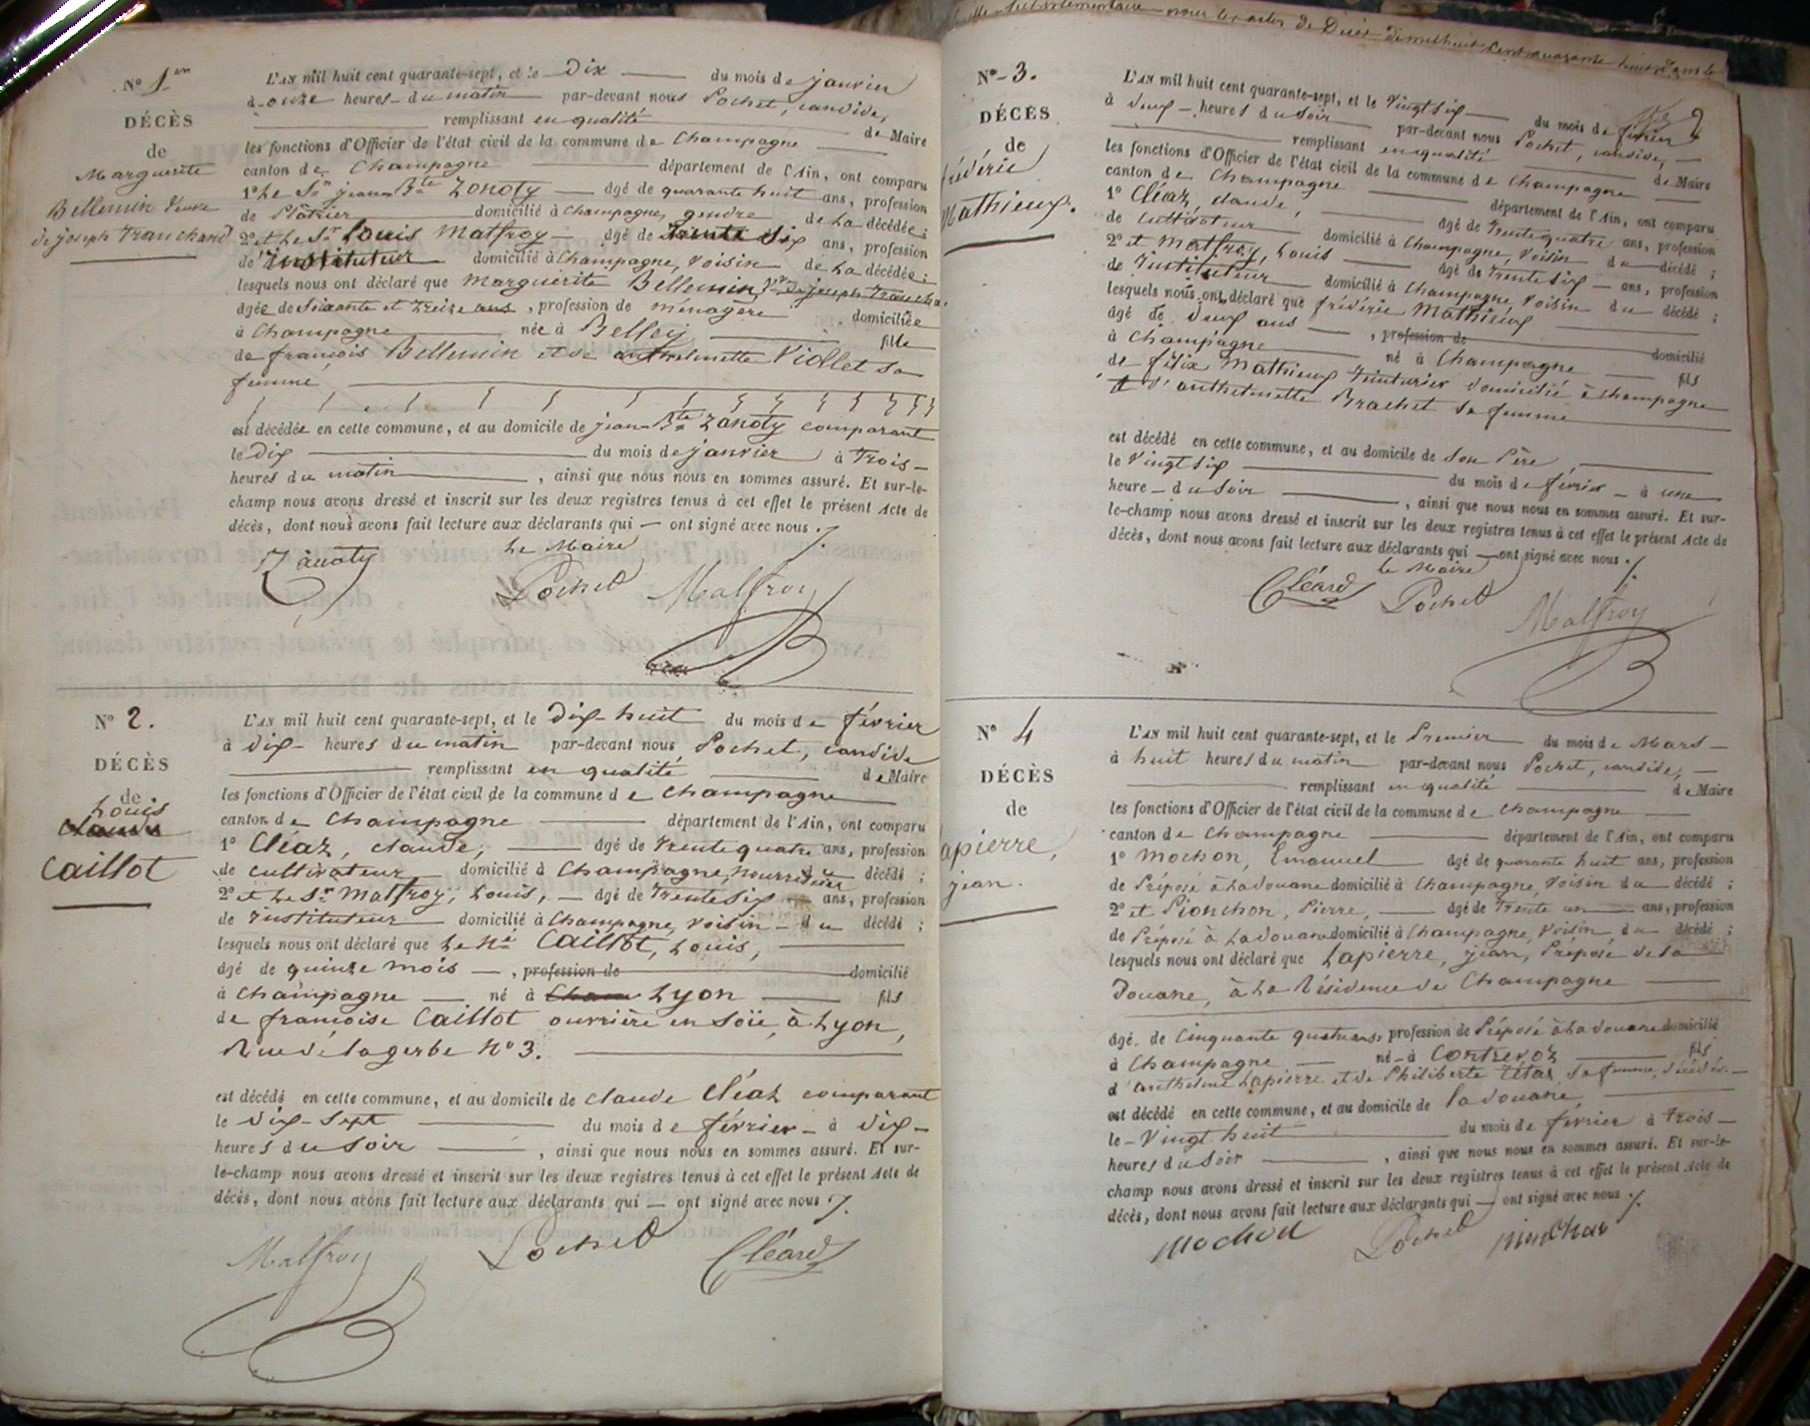 N° 1er
DÉCÈS
de
Marguerite
Bellemin veuve
de joseph Tranchand
L'AN mil huit cent quarante-sept, et le Dix du mois de janvier
à onze heures du matin par-devant nous Pochet, candide,
remplissant en qualité de Maire
les fonctions d'Officier de l'état civil de la commune de Champagne
canton de Champagne département de l'Ain, ont comparu
1° Le Sr jean Bte Zanoty âgé de quarante huit ans, profession
de Plâtrier domicilié à Champagne, gendre de La décédée;
2° et Le Sr Louis Malfroy âgé de trente Six ans, profession
de Instituteur domicilié à Champagne, Voisin de La décédée;
lesquels nous ont déclaré que Marguerite Bellemin, Vve de joseph Trancha.
âgée de Soixante et treize ans, profession de ménagère domiciliée
à Champagne née à Belley fille
de françois Bellemin et de anthelmette Viollet sa
femme
est décédée en cette commune, et au domicile de jean Bte Zanoty comparant
le dix du mois de janvier à trois
heures du matin, ainsi que nous nous en sommes assuré. Et sur-le-
champ nous avons dressé et inscrit sur les deux registres tenus à cet effet le présent Acte de
décès, dont nous avons fait lecture aux déclarants qui — ont signé avec nous.
Le Maire
Zanoty Pochet Malfroy
N° 2.
DÉCÈS
de
Louis
Caillot
L'AN mil huit cent quarante-sept, et le Dix-huit du mois de février
à dix heures du matin par-devant nous Pochet, candide
remplissant en qualité de Maire
les fonctions d'Officier de l'état civil de la commune de Champagne
canton de Champagne département de l'Ain, ont comparu
1° Cléaz, claude, âgé de trente quatre ans, profession
de cultivateur domicilié à Champagne, nourrisseur décédé;
2° et Le Sr Malfroy, Louis, âgé de trente six ans, profession
de Instituteur domicilié à Champagne, voisin du décédé;
lesquels nous ont déclaré que Le né Caillot, Louis,
âgé de quinze mois, profession de domicilié
à Champagne né à Cham Lyon fils
de françoise Caillot ouvrière en Soie, à Lyon,
Rue de la gerbe N° 3.
est décédé en cette commune, et au domicile de claude Cléaz comparant
le dix-sept du mois de février à dix
heures du Soir, ainsi que nous nous en sommes assuré. Et sur-
le-champ nous avons dressé et inscrit sur les deux registres tenus à cet effet le présent Acte de
décès, dont nous avons fait lecture aux déclarants qui — ont signé avec nous.
Malfroy Pochet Cléard
supplémentaire pour les actes de Décès de mil huit cent quarante huit
2
N° 3.
DÉCÈS
de
frédéric
Mathieux.
L'AN mil huit cent quarante-sept, et le Vingt six du mois de février
à deux heures du soir par-devant nous Pochet, candide,
remplissant en qualité de Maire
les fonctions d'Officier de l'état civil de la commune de Champagne
canton de Champagne département de l'Ain, ont comparu
1° Cléaz, claude, âgé de trente quatre ans, profession
de cultivateur domicilié à Champagne, Voisin du décédé;
2° et Malfroy, Louis âgé de trente six ans, profession
de Instituteur domicilié à Champagne, Voisin du décédé;
lesquels nous ont déclaré que frédéric Mathieux
âgé de deux ans, profession de domicilié
à Champagne né à Champagne fils
de félix Mathieux Teinturier domicilié à champagne
et d'anthelmette Brachet sa femme
est décédé en cette commune, et au domicile de Son Père,
le Vingt six du mois de février à une
heure du soir, ainsi que nous nous en sommes assuré. Et sur-
le-champ nous avons dressé et inscrit sur les deux registres tenus à cet effet le présent Acte de
décès, dont nous avons fait lecture aux déclarants qui — ont signé avec nous.
le Maire
Cléard Pochet Malfroy
N° 4
DÉCÈS
de
apierre,
jean.
L'AN mil huit cent quarante-sept, et le Premier du mois de Mars
à huit heures du matin par-devant nous Pochet, candide,
remplissant en qualité de Maire
les fonctions d'Officier de l'état civil de la commune de Champagne
canton de Champagne département de l'Ain, ont comparu
1° Mochon, Emanuel âgé de quarante huit ans, profession
de Préposé à La douane domicilié à Champagne, Voisin du décédé;
2° et Pionchon, Pierre, âgé de Trente un ans, profession
de Préposé à La douane domicilié à Champagne, Voisin du décédé;
lesquels nous ont déclaré que Lapierre, jean, Préposé de la
Douane, à La Résidence de Champagne
âgé de Cinquante quatre ans, profession de Préposé à La douane domicilié
à Champagne né à Contrevoz fils
d'anthelme Lapierre et de Philiberte sa femme, décédés.
est décédé en cette commune, et au domicile de la douane,
le Vingt huit du mois de février à trois
heures du Soir, ainsi que nous nous en sommes assuré. Et sur-le-
champ nous avons dressé et inscrit sur les deux registres tenus à cet effet le présent Acte de
décès, dont nous avons fait lecture aux déclarants qui — ont signé avec nous.
Mochon Pochet